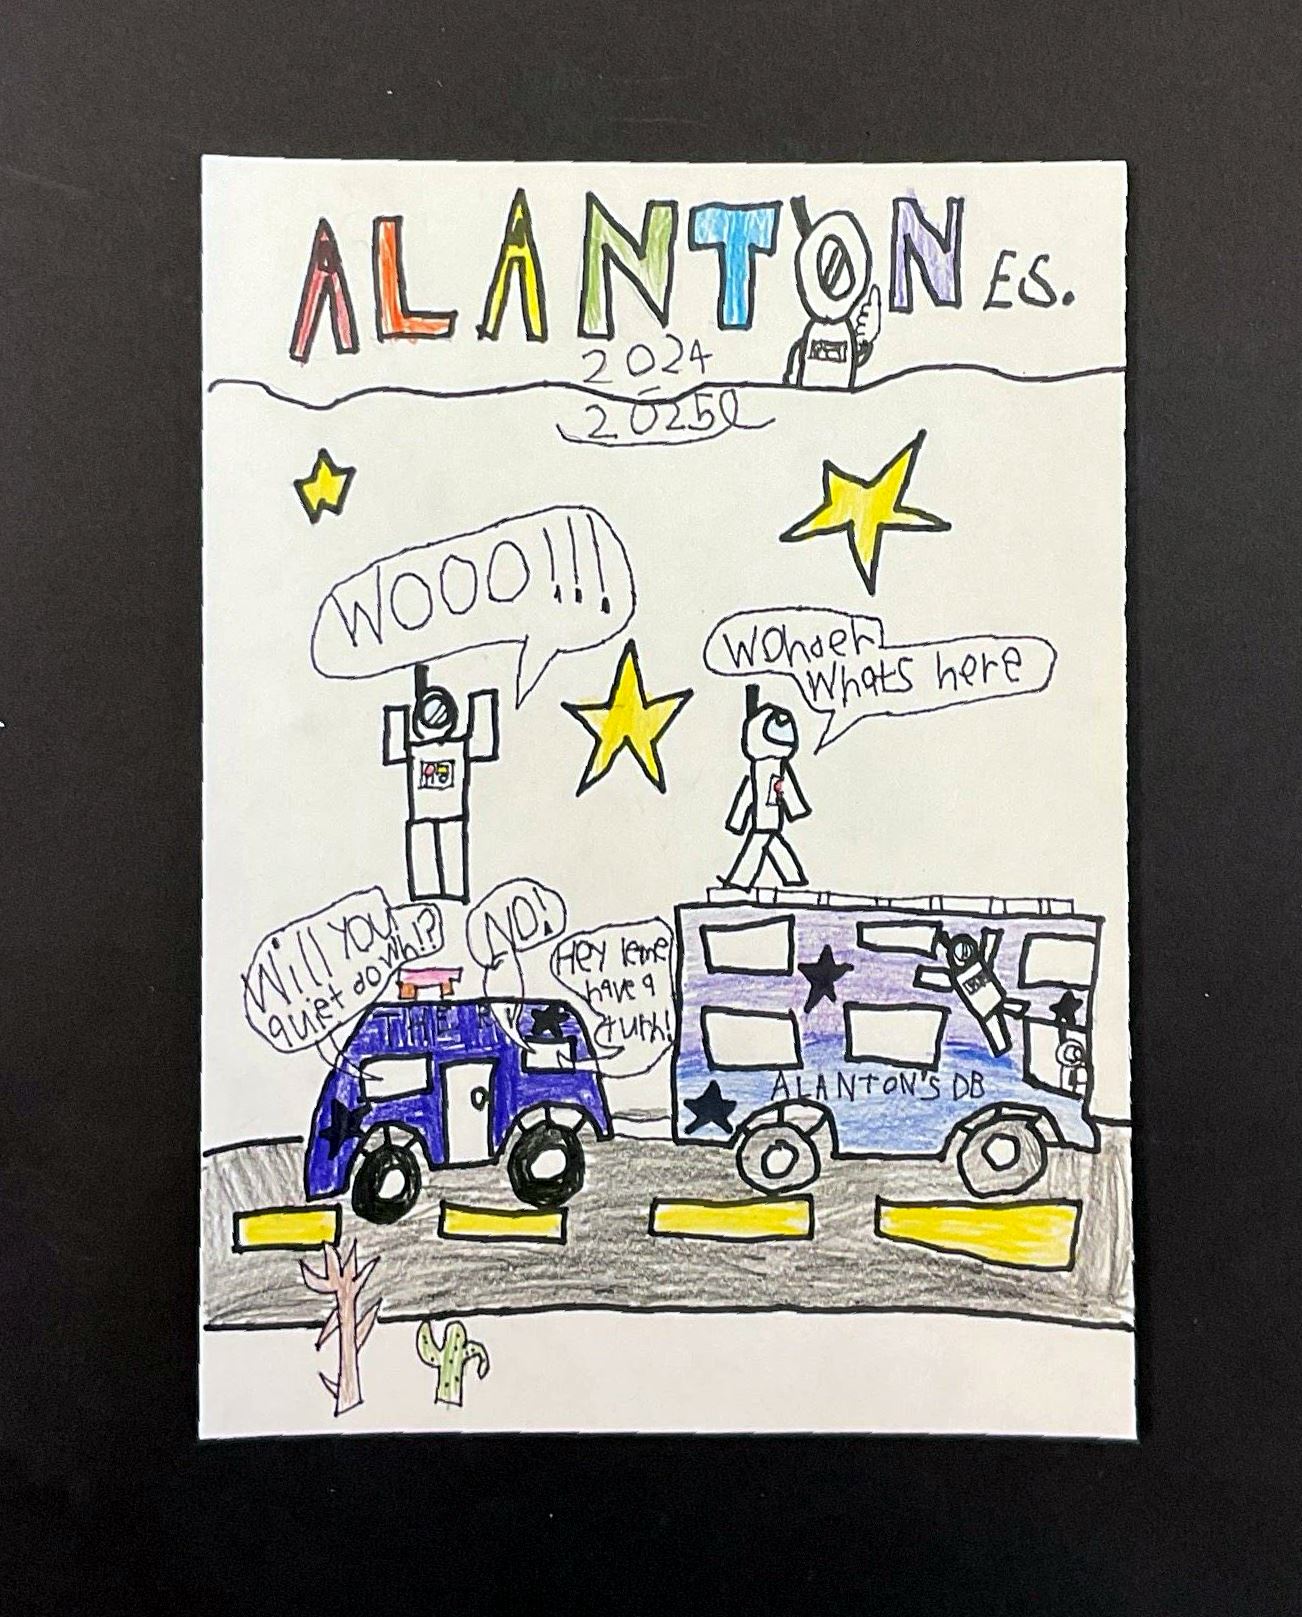 ALANTON ES.
2024
2025
WOOO!!!
Wonder
Whats here
Will YOU
quiet down!?
NO!
Hey leme
have a
turn!
THE RV
ALANTON'S DB